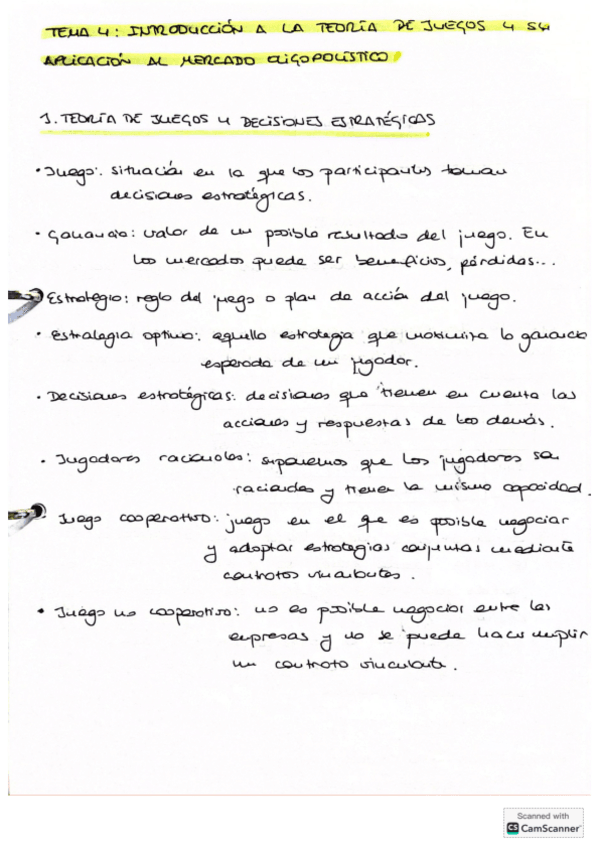 TEMA 4: INTRODUCCIÓN A LA TEORÍA DE JUEGOS Y SU
APLICACIÓN AL MERCADO OLIGOPOLÍSTICO
1. TEORÍA DE JUEGOS Y DECISIONES ESTRATÉGICAS
· Juego: situación en la que los participantes toman
decisiones estratégicas.
· Ganancia: valor de un posible resultado del juego. En
los mercados puede ser beneficios, pérdidas...
Estrategia: regla del juego o plan de acción del juego.
· Estrategia optima: aquella estrategia que maximiza la ganancia
esperada de un jugador.
· Decisiones estratégicas: decisiones que tienen en cuenta las
acciones y respuestas de los demás.
· Jugadores racionales: suponemos que los jugadores son
racionales y tienen la misma capacidad.
Juego cooperativo: juego en el que es posible negociar
y adoptar estrategias conjuntas mediante
contratos vinculantes.
· Juego no cooperativo: no es posible negociar entre las
empresas y no se puede hacer cumplir
un contrato vinculante.
Scanned with
CS CamScanner